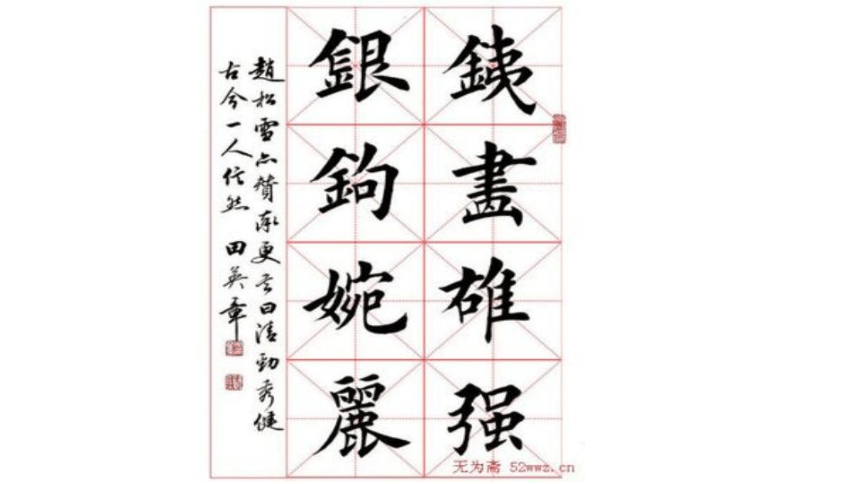 銕畫雄强
銀鉤婉麗
趙松雪亦贊承更言曰清勁秀健
古今一人信然 田英章
无为斋 52wwz.cn